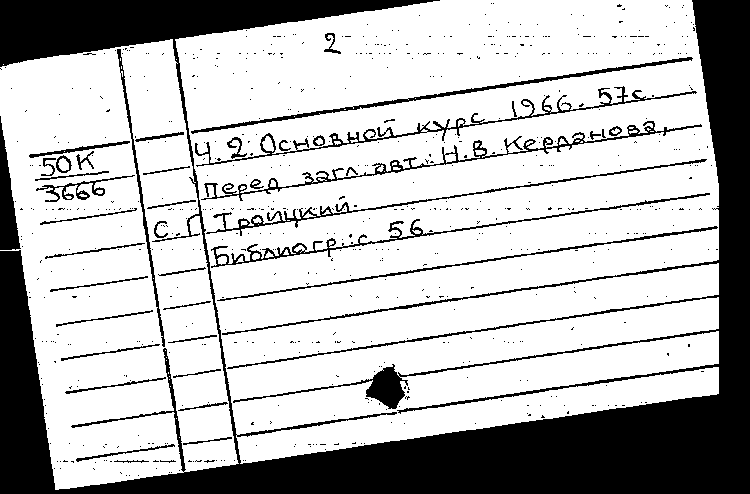 2
Ч. 2. Основной курс 1966. 57с.
50К
3666
перед загл. авт.: Н.В. Керданова,
С.Г. Троицкий.
Библиогр.: с 56.